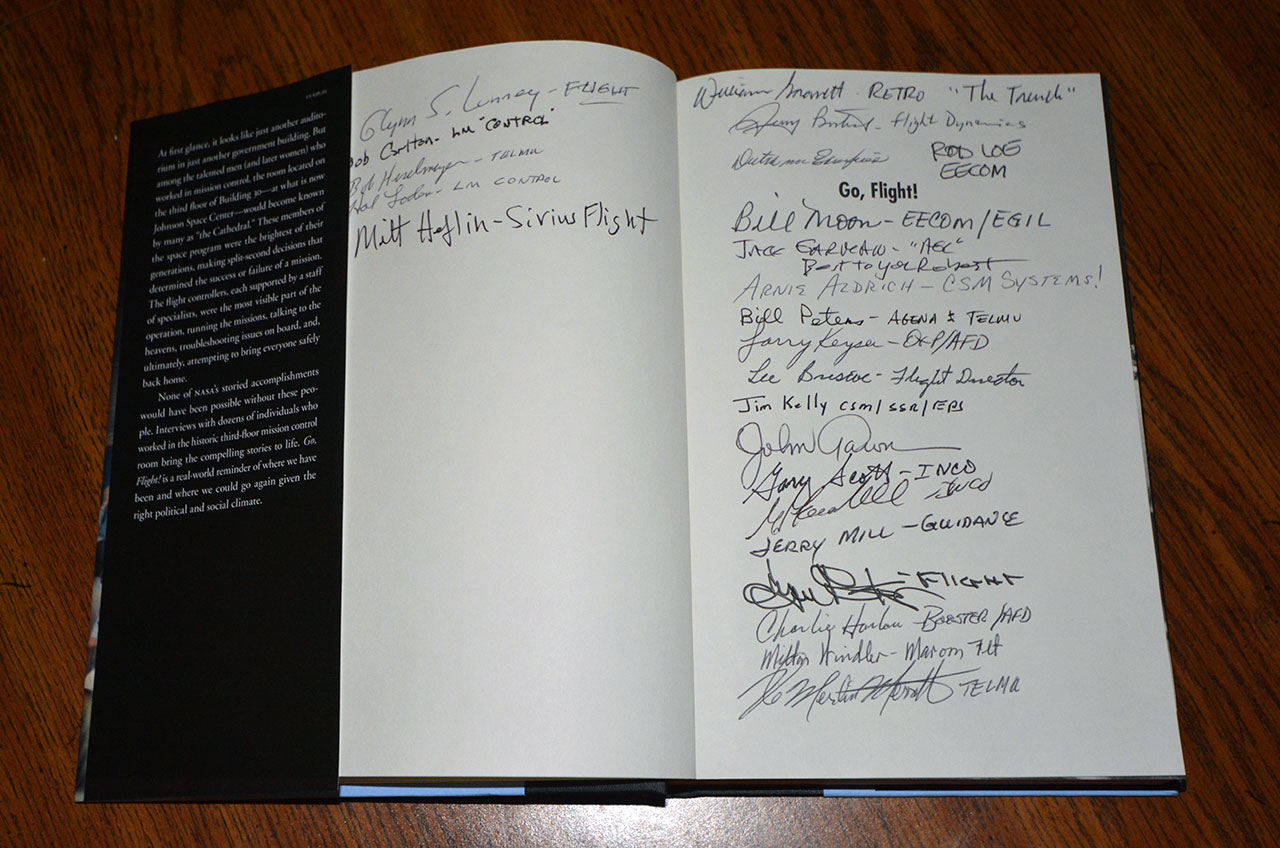 At first glance, it looks like just another audito-
rium in just another government building. But
among the talented men (and later women) who
worked in mission control, the room located on
the third floor of Building 30—at what is now
Johnson Space Center—would become known
by many as “the Cathedral.” These members of
the space program were the brightest of their
generations, making split-second decisions that
determined the success or failure of a mission.
The flight controllers, each supported by a staff
of specialists, were the most visible part of the
operation, running the missions, talking to the
heavens, troubleshooting issues on board, and,
ultimately, attempting to bring everyone safely
back home.
None of NASA’s storied accomplishments
would have been possible without these peo-
ple. Interviews with dozens of individuals who
worked in the historic third-floor mission control
room bring the compelling stories to life. Go,
Flight! is a real-world reminder of where we have
been and where we could go again given the
right political and social climate.
Glynn S. Lunney - FLIGHT
Bob Carlton - LM "CONTROL"
Bob Heselmeyer - TELMU
Hal Loden - LM CONTROL
Milt Heflin - Sirius Flight
William - RETRO "The Trench"
Jerry Bostick - Flight Dynamics
ROD LOE
EECOM
Go, Flight!
Bill Moon - EECOM/EGIL
JACK GARMAN - "AGC"
Best to you
ARNIE ALDRICH - CSM SYSTEMS!
Bill Peters - AGENA & TELMU
Larry Keyser - /AFD
Lee Briscoe - Flight Director
Jim Kelly CSM/SSR/EPS
John Aaron
Gary Scott - INCO
INCO
JERRY MILL - GUIDANCE
- FLIGHT
Charlie Harlan - BOOSTER/AFD
Milton Windler - Maroon Flt
Merlin Merritt TELMU